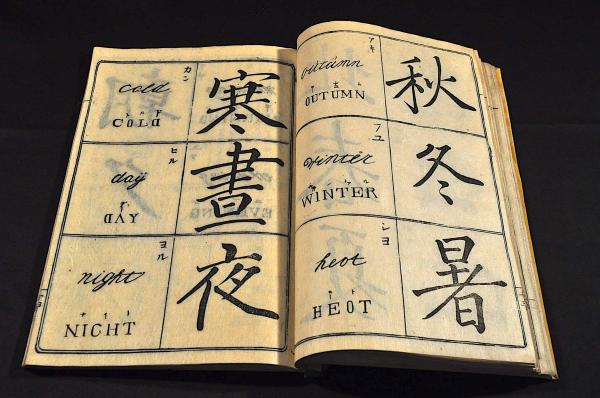 秋
アキ
outumn
OUTUMN
冬
フユ
winter
WINTER
暑
シヨ
heot
HEOT
寒
カン
cold
COLD
晝
ヒル
day
DAY
夜
ヨル
night
NICHT